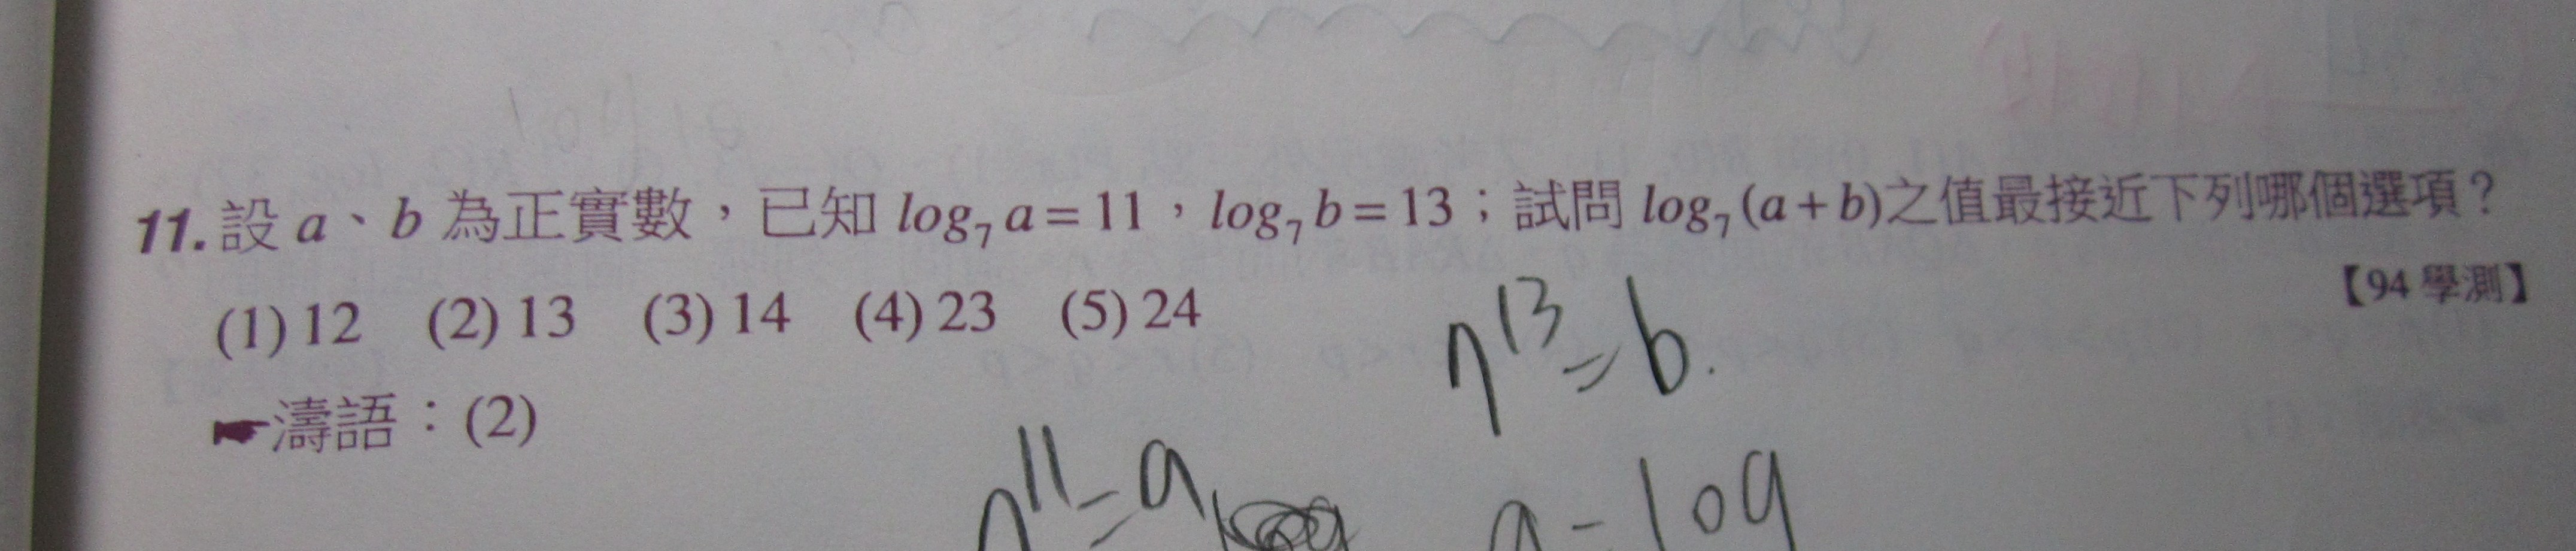 11. 設 a、b 為正實數，已知 log₇ a = 11，log₇ b = 13；試問 log₇ (a + b)之值最接近下列哪個選項？
【94 學測】
(1) 12 (2) 13 (3) 14 (4) 23 (5) 24
7¹³ = b.
☛濤語：(2)
7¹¹ = a
a = log